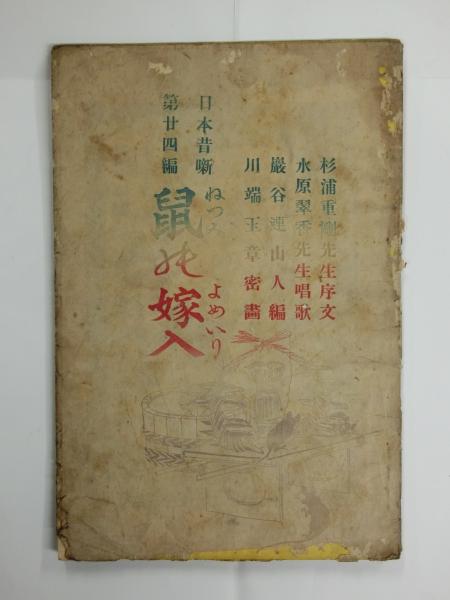 杉浦重剛先生序文
水原翠香先生唱歌
巖谷連山人編
川端玉章密畫
日本昔噺
第廿四編
ねつみ
よめいり
鼠の嫁入